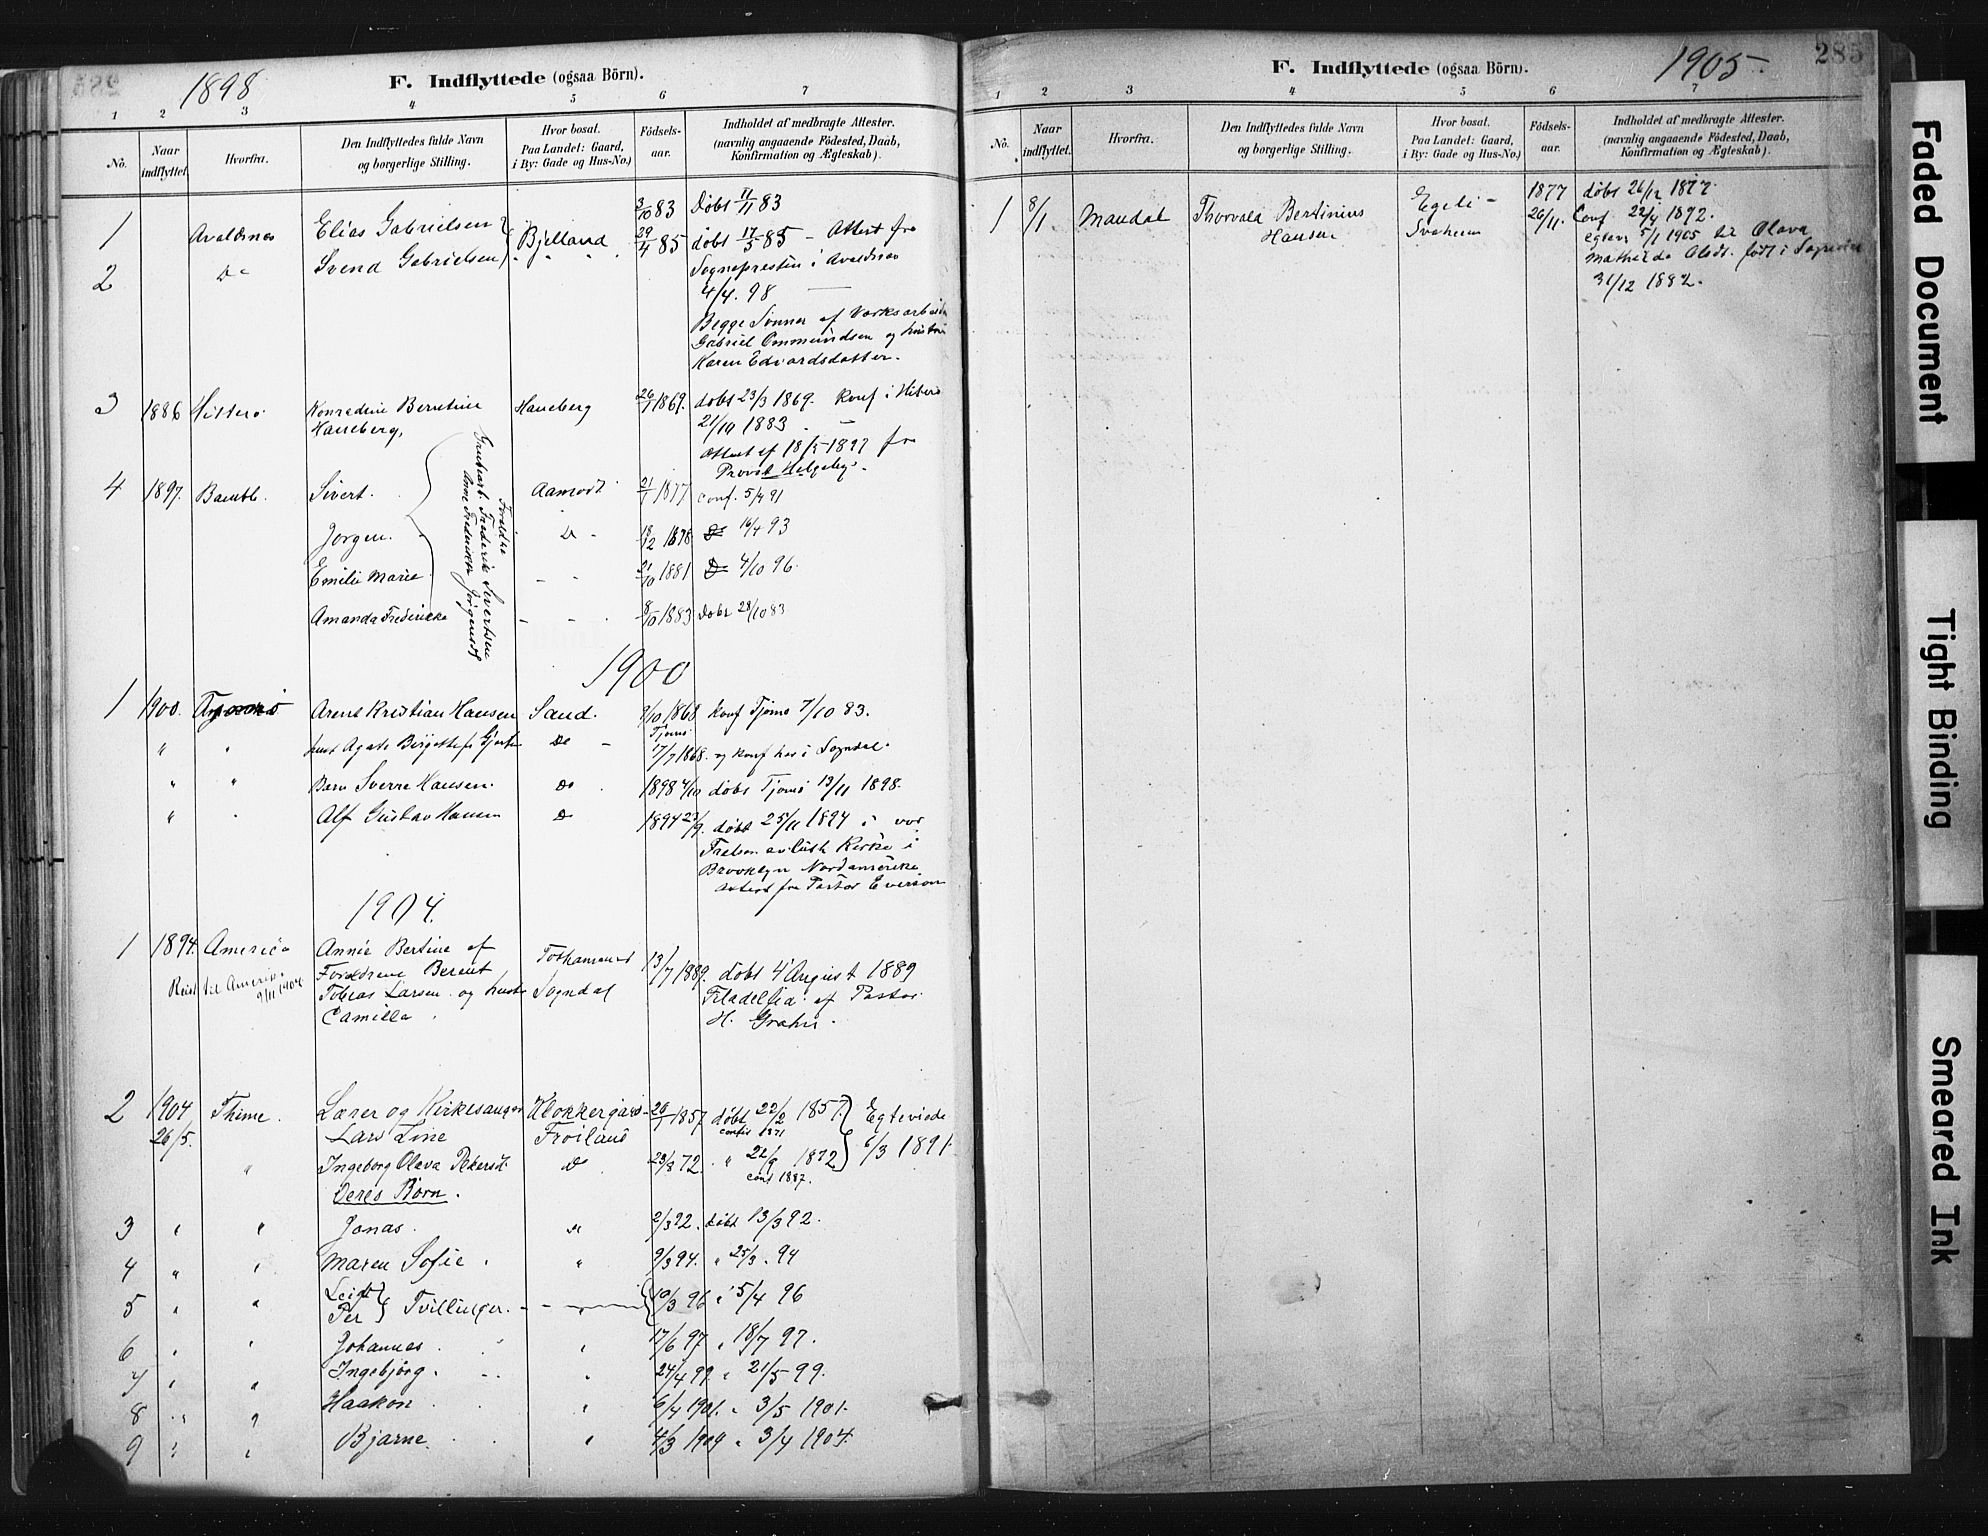 1898
F. Indflyttede (ogsaa Börn).
1 2 3 4 5 6 7
No. Naar indflyttet. Hvorfra. Den Indflyttedes fulde Navn og borgerlige Stilling. Hvor bosat. Paa Landet: Gaard, i By: Gade og Hus-No.) Födsels-aar. Indholdet af medbragte Attester. (navnlig angaaende Födested, Daab, Konfirmation og Ægteskab).
1 Avaldsnes Elias Gabrielsen Bjelland 3/10 83 Døbt 11/11 83
2 Do Svend Gabrielsen " " " 29/4 85 døbt 17/5 85 - Attest fra
Sognepresten i Avaldsnes
4/4. 98
Begge Sønner af
Gabriel Ommundsen og hustru
Karen Edvardsdatter.
3 1886 Hitterø Konradine Berntine Haneberg 26/1 1869. døbt 23/3 1869. Konf i Hiterø
Haneberg, 21/10 1883
Attest af 18/5 1897 fra
Provst
4 1897. Bamble. Sivert. Aamodt 21/1 1877 conf. 5/4 91
Jørgen. Do 18/12 1878 Do 16/4 93
Emilie Marie - - 21/10 1881 Do 4/10 96
Amanda Fredrikke - - 8/10 1883 Døbt 28/10 83
Foreldre
Frederik Sivertsen
1900
1 1900. Arent Kristian Hansen Sand. 9/10 1868 Konf Tjømø 7/10 83.
" " Do - 17/7 1868. og konf her i Sogndal.
" " Barn Sverre Hansen. Do 1898 4/10 døbt Tjømø 13/11 1898.
" " Alf Gustav Hansen Do 1894 23/9. døbt 25/11 1894 i vor
Frelsers ev. luth Kirke i
Brooklyn Nordamerika
attest fra Pastor Everson
1904.
1 1894. America Annie Bertine af 13/7 1889. døbt 4 August 1889
Reist til Amerika 9/11 1904 Foreldrene Berent
Tobias Larsen og hustru Sogndal Filadelfia af Pastor
Camilla H. Grahn.
2 1904 Thime. Lærer og Kirkesanger Klokkergard- 26/1 1857 døbt 22/2 1857. Egteviede
26/5. Lars Line Frøiland confir 1871 6/3 1891.
" Ingeborg Olava Pedersdt. Do 23/8 72. " 22/9 1872
Deres Børn. conf 1887.
3 " " Jonas. " 2/3 92. døbt 13/3 92.
4 " " Maren Sofie " 9/3 94. " 25/3. 94
5 " " Leif
Per } Tvillinger. - - 10/3 96 " 5/4 96
6 " " Johannes " 17/6 97 " 18/7 97.
7 " " Ingebjørg. " 24/4 99 " 21/5 99.
8 " " Haakon " 6/4 1901. " 3/5 1901.
9 " " Bjarne. " 4/3 1904 " 3/4 1904.
F. Indflyttede (ogsaa Börn).
1905.
285
1 2 3 4 5 6 7
No. Naar indflyttet. Hvorfra. Den Indflyttedes fulde Navn og borgerlige Stilling. Hvor bosat. Paa Landet: Gaard, i By: Gade og Hus-No.) Födsels-aar. Indholdet af medbragte Attester. (navnlig angaaende Födested, Daab, Konfirmation og Ægteskab).
1 8/1. Mandal Thorvald Bertinius Egeli - 1877 døbt 26/12 1877.
Hansen Svaheim 26/11. Conf 22/4 1892.
egtev 5/1 1905 til Olava
Mathilda Olsdt. født i Sogndal
31/12 1882.
Faded Document
Tight Binding
Smeared Ink